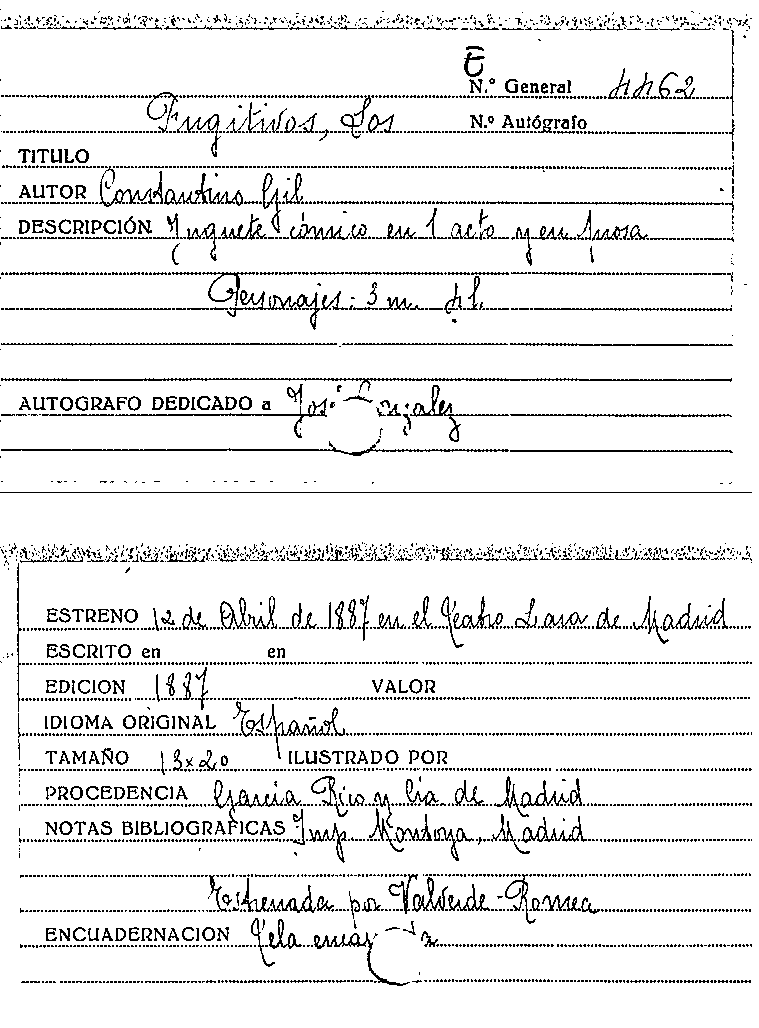 E
N.º General 4462
Fugitivos, Los N.º Autógrafo
TITULO
AUTOR Constantino Gil
DESCRIPCIÓN Juguete cómico en 1 acto y en prosa
Personajes: 3 m. 4 h.
AUTOGRAFO DEDICADO a José González
ESTRENO 12 de Abril de 1887 en el Teatro Lara de Madrid
ESCRITO en en
EDICION 1887 VALOR
IDIOMA ORIGINAL Español
TAMAÑO 13x20 ILUSTRADO POR
PROCEDENCIA García Rico y Cía de Madrid
NOTAS BIBLIOGRAFICAS Imp. Montoya, Madrid
Estrenada por Valverde-Romea
ENCUADERNACION Tela